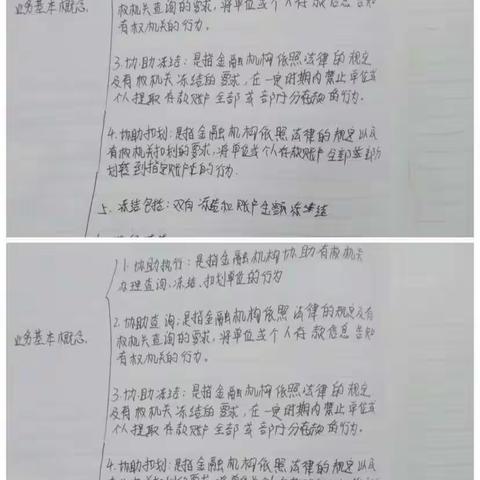 业务基本概念.
权机关查询的要求,将单位或个人存款信息告知
有权机关的行为.
3.协助冻结:是指金融机构依照法律的规定
及有权机关冻结的要求,在一定时期内禁止单位或
个人提取存款账户全部或部分存款的行为.
4.协助扣划:是指金融机构依照法律的规定以及
有权机关扣划的要求,将单位或个人存款账户全部或部分
划转到指定账户上的行为.
5、冻结包括:双向冻结和账户全额冻结
业务基本概念.
1.协助执行:是指金融机构协助有权机关
办理查询、冻结、扣划单位的行为
2.协助查询:是指金融机构依照法律的规定及有
权机关查询的要求,将单位或个人存款信息告知
有权机关的行为.
3.协助冻结:是指金融机构依照法律的规定
及有权机关冻结的要求,在一定时期内禁止单位或
个人提取存款账户全部或部分存款的行为.
4.协助扣划:是指金融机构依照法律的规定以及